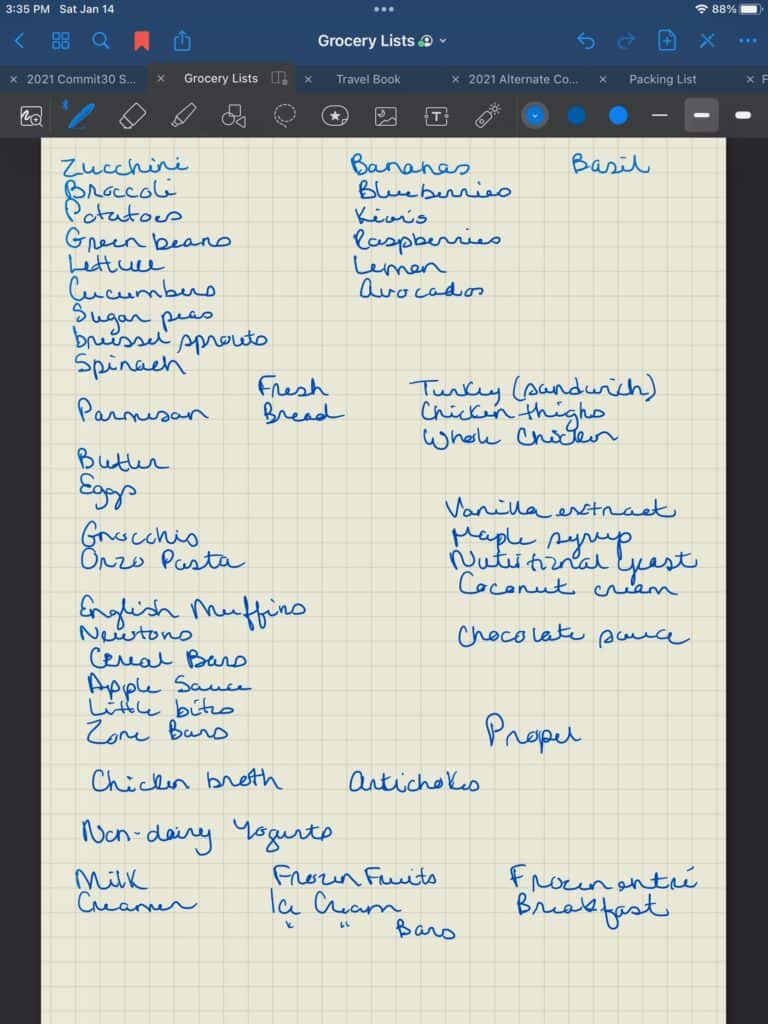 3:35 PM Sat Jan 14
88%
Grocery Lists
2021 Commit30 S...
Grocery Lists
Travel Book
2021 Alternate Co...
Packing List
F
Zucchini
Broccoli
Potatoes
Green beans
Lettuce
Cucumbers
Sugar peas
brussel sprouts
Spinach
Bananas
Blueberries
Kiwis
Raspberries
Lemon
Avocados
Basil
Parmesan
Fresh
Bread
Turkey (sandwich)
Chicken thighs
Whole Chicken
Butter
Eggs
Gnocchis
Orzo Pasta
Vanilla extract
Maple syrup
Nutritional yeast
Coconut cream
Chocolate sauce
English Muffins
Newtons
Cereal Bars
Apple Sauce
Little bits
Zone Bars
Propel
Chicken broth
Artichokes
Non-dairy Yogurts
Milk
Creamer
Frozen Fruits
Ice Cream
" " Bars
Frozen entré
Breakfast